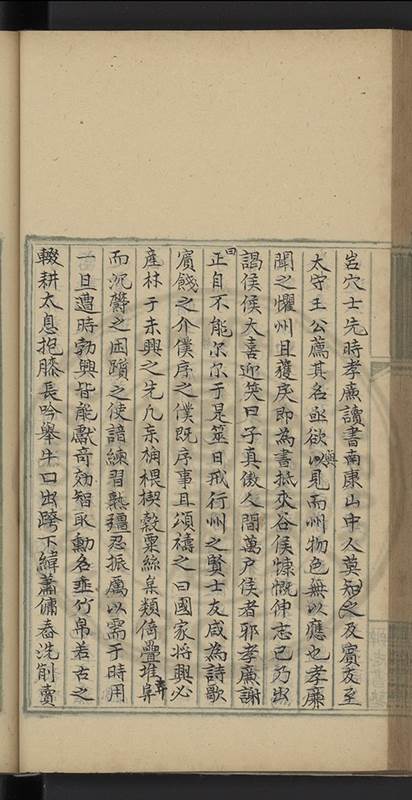 岩穴士先時孝廉讀書南康山中人莫知之及賓友至
太守王公薦其名亟欲以見而州物色無以應也孝廉
聞之懼州且獲戾即為書抵夾谷侯慷慨伸志已乃出
謁侯侯大喜迎笑曰子真傲人間萬戶侯者耶孝廉謝
曰正自不能尔尔于是筮日戒行州之賢士友咸為詩歌
賓餞之介僕序之僕既序事且頌禱之曰國家將興必
產材于未興之先凡亲楠椳楔穀粟絲枲類倚疊堆阜
而沉欝之困躓之使諳練習熟
忍振厲以需于時用
一旦遭時勃興皆能獻奇効智取勳名垂竹帛若古之
輟耕太息抱膝長吟舉牛口出跨下緯蕭傭舂洗削賣